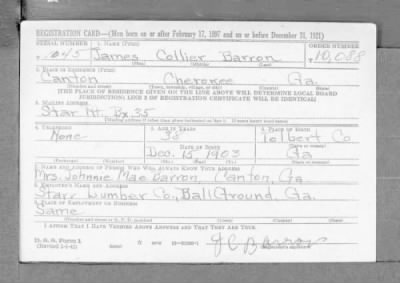 REGISTRATION CARD—(Men born on or after February 17, 1897 and on or before December 31, 1921)
SERIAL NUMBER 1. NAME (Print) ORDER NUMBER
1045 James Collier Barron 10,088
(First) (Middle) (Last)
2. PLACE OF RESIDENCE (Print)
Canton Cherokee Ga.
(Town, township, village, or city) (County) (State)
[THE PLACE OF RESIDENCE GIVEN ON THE LINE ABOVE WILL DETERMINE LOCAL BOARD
JURISDICTION; LINE 2 OF REGISTRATION CERTIFICATE WILL BE IDENTICAL]
3. MAILING ADDRESS
Star Rt. Bx 35
[Mailing address if other than place indicated on line 2. If same insert word same]
4. TELEPHONE 5. AGE IN YEARS 6. PLACE OF BIRTH
None 38 Tolbert Co.
DATE OF BIRTH (Town or county)
Dec. 15 1903 Ga
(Exchange) (Number) (Mo.) (Day) (Yr.) (State or country)
7. NAME AND ADDRESS OF PERSON WHO WILL ALWAYS KNOW YOUR ADDRESS
Mrs. Johnnie Mae Barron, Canton, Ga.
8. EMPLOYER'S NAME AND ADDRESS
Starr Lumber Co., Ball Ground, Ga.
9. PLACE OF EMPLOYMENT OR BUSINESS
Same
(Number and street or R. F. D. number) (Town) (County) (State)
I AFFIRM THAT I HAVE VERIFIED ABOVE ANSWERS AND THAT THEY ARE TRUE.
D. S. S. Form 1
(Revised 1-1-42) (over) J C Barron